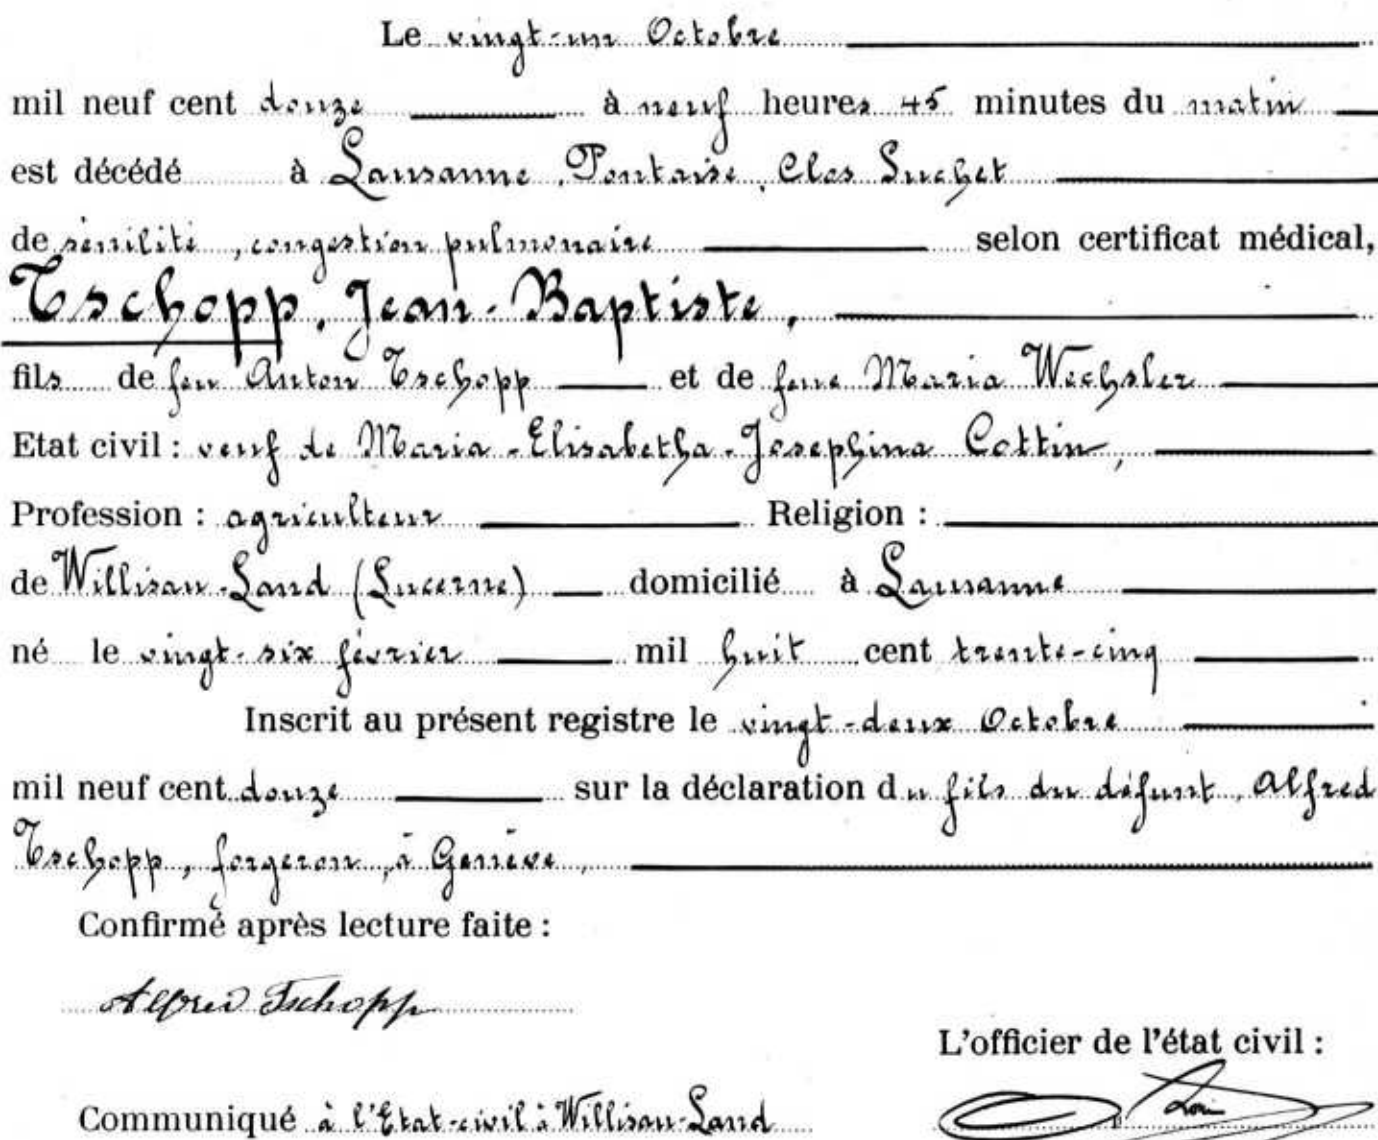 Le vingt-un Octobre
mil neuf cent douze à neuf heures 45 minutes du matin
est décédé à Lausanne, Pontaise, Clos Suchet
de sénilité, congestion pulmonaire selon certificat médical,
Tschopp, Jean-Baptiste,
fils de feu Anton Tschopp et de feue Maria Wechsler
Etat civil : veuf de Maria-Elisabetha-Josephina Cottin,
Profession : agriculteur Religion :
de Willisau-Land (Lucerne) domicilié à Lausanne
né le vingt-six février mil huit cent trente-cinq
Inscrit au présent registre le vingt-deux Octobre
mil neuf cent douze sur la déclaration du fils du défunt, Alfred
Tschopp, forgeron, à Genève,
Confirmé après lecture faite :
Alfred Tschopp
L'officier de l'état civil :
Communiqué à l'Etat-civil à Willisau-Land